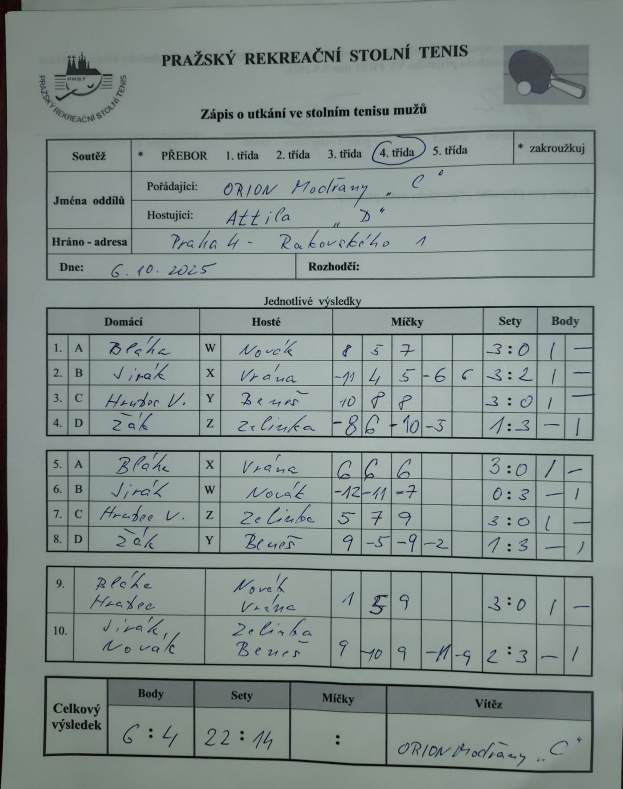 PRAŽSKÝ REKREAČNÍ STOLNÍ TENIS
PRST
PRAŽSKÝ REKREAČNÍ STOLNÍ TENIS
Zápis o utkání ve stolním tenisu mužů
Soutěž * PŘEBOR 1. třída 2. třída 3. třída 4. třída 5. třída * zakroužkuj
Jména oddílů
Pořádající: ORION Modřany „C"
Hostující: Attila „D"
Hráno - adresa Praha 4 - Rakovského 1
Dne: 6.10.2025 Rozhodčí:
Jednotlivé výsledky
Domácí Hosté Míčky Sety Body
1. A Bláha W Novák 8 5 7 3:0 1 -
2. B Jirák X Vrána -11 4 5 -6 6 3:2 1 -
3. C Hrubec V. Y Beneš 10 8 8 3:0 1 -
4. D Žák Z Zelinka -8 6 -10 -3 1:3 - 1
5. A Bláha X Vrána 6 6 6 3:0 1 -
6. B Jirák W Novák -12 -11 -7 0:3 - 1
7. C Hrubec V. Z Zelinka 5 7 9 3:0 1 -
8. D Žák Y Beneš 9 -5 -9 -2 1:3 - 1
9. Bláha Novák
Hrubec Vrána 1 5 9 3:0 1 -
10. Jirák, Zelinka
Novák Beneš 9 -10 9 -11 -9 2:3 - 1
Celkový výsledek
Body Sety Míčky Vítěz
6:4 22:14 : ORION Modřany „C"